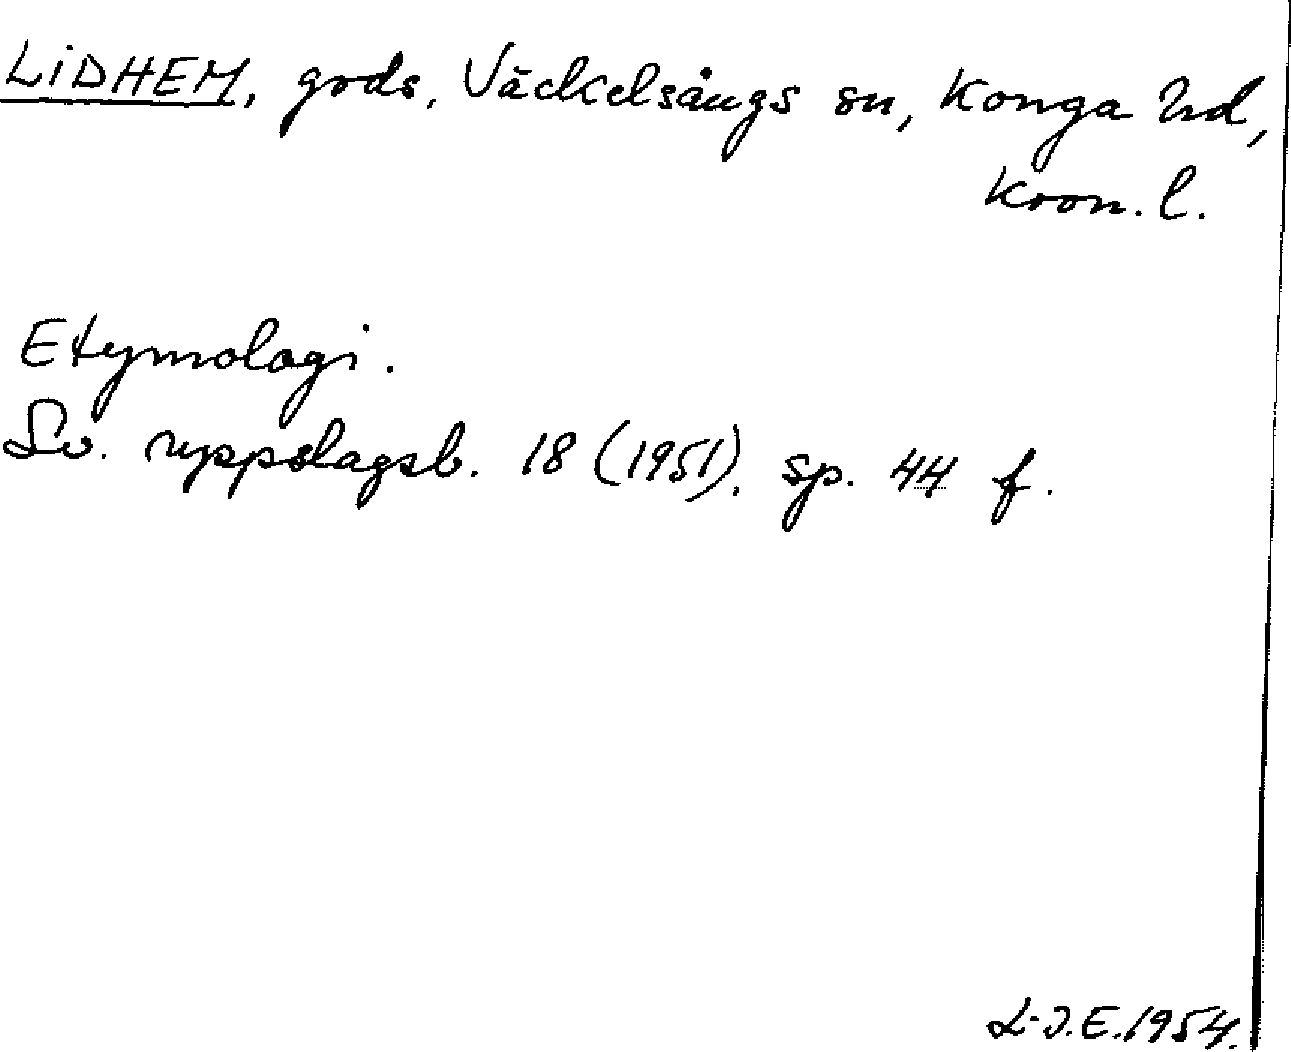 LIDHEM, gods, Väckelsångs sn, Konga hd,
Kron. l.
Etymologi.
Sv. uppslagsb. 18 (1951), sp. 44 f.
L-I.E. 1954.